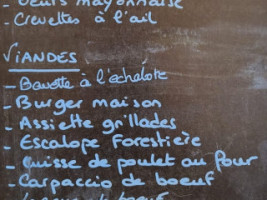 - Oeufs mayonnaise
- Crevettes à l'ail
VIANDES
- Bavette à l'échalote
- Burger maison
- Assiette grillades
- Escalope Forestière
- Cuisse de poulet au Four
- Carpaccio de boeuf
de boeuf